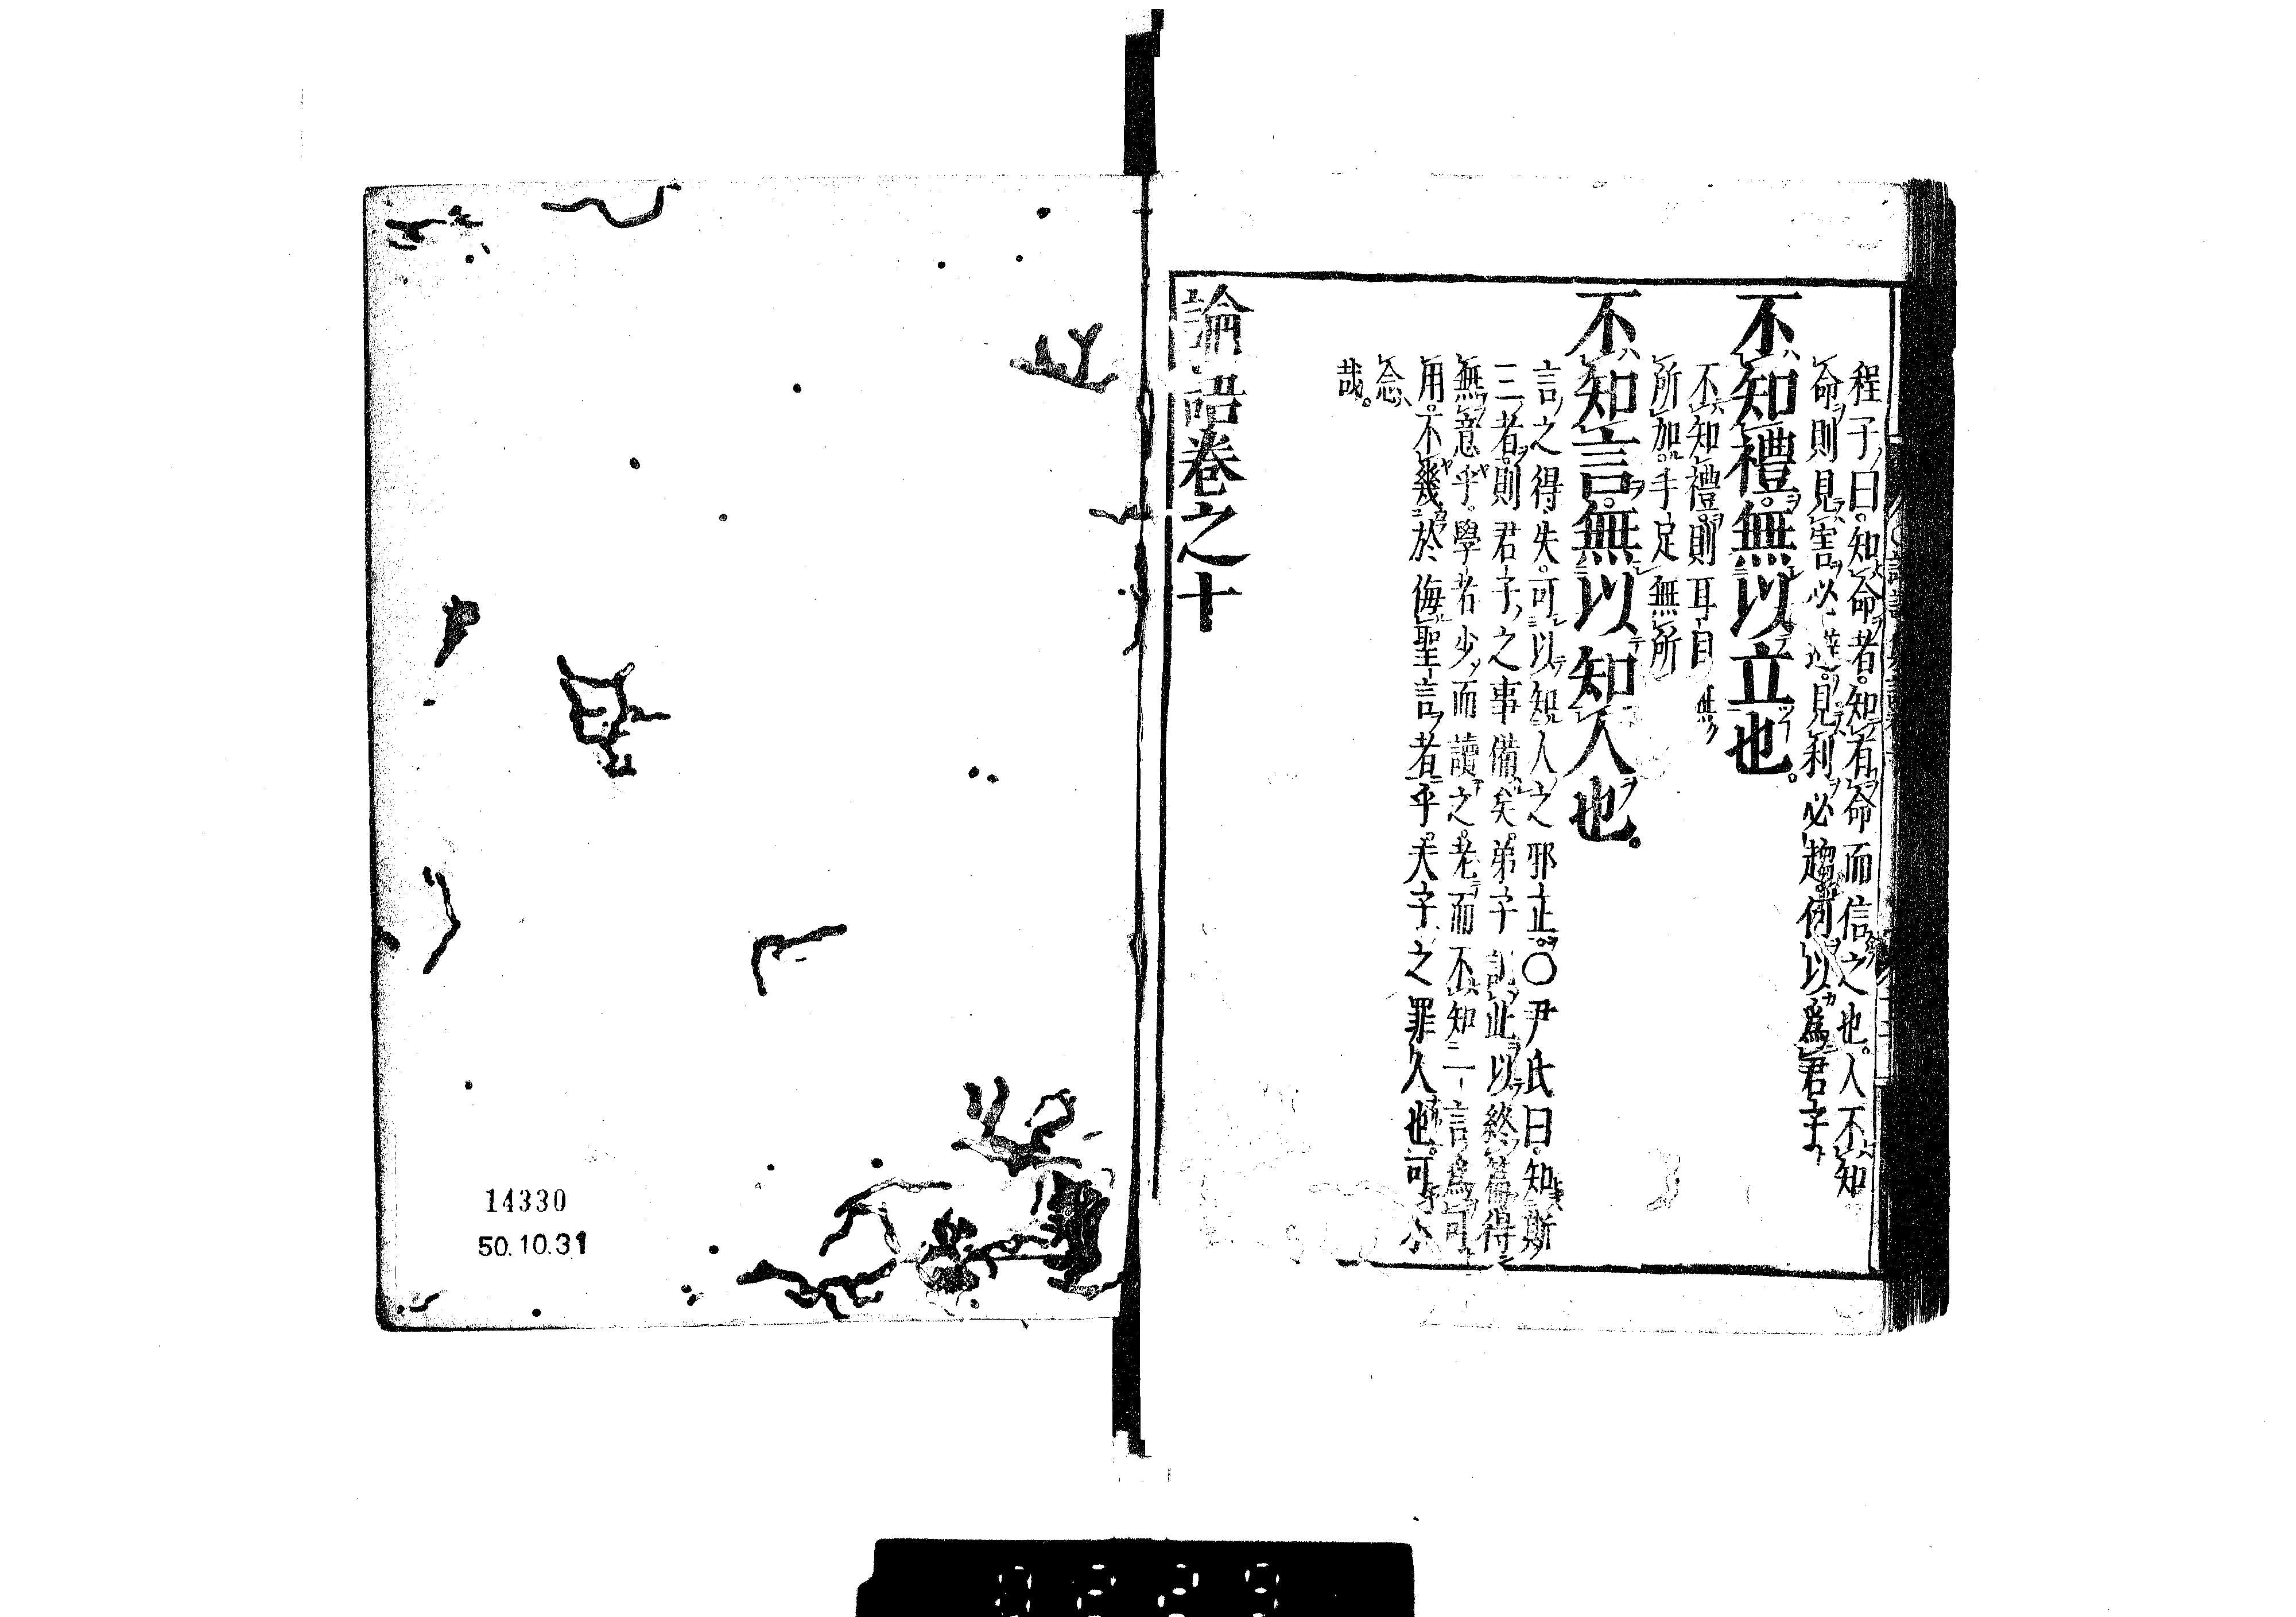 程子曰。知命者。知有命而信之也。人不知
命則見害必避。見利必趨。何以爲君子
不知禮。無以立也。
不知禮則耳目無
所加。手足無所
不知言。無以知人也。
言之得失。可以知人之邪正。〇尹氏曰。知斯
三者。則君子之事備矣。弟子記此以終篇。得
無意乎。學者少而讀之。老而不知一言爲可
用。不幾於侮聖言者乎。夫子之罪人也。可不
念
哉。
論語卷之十
14330
50.10.31